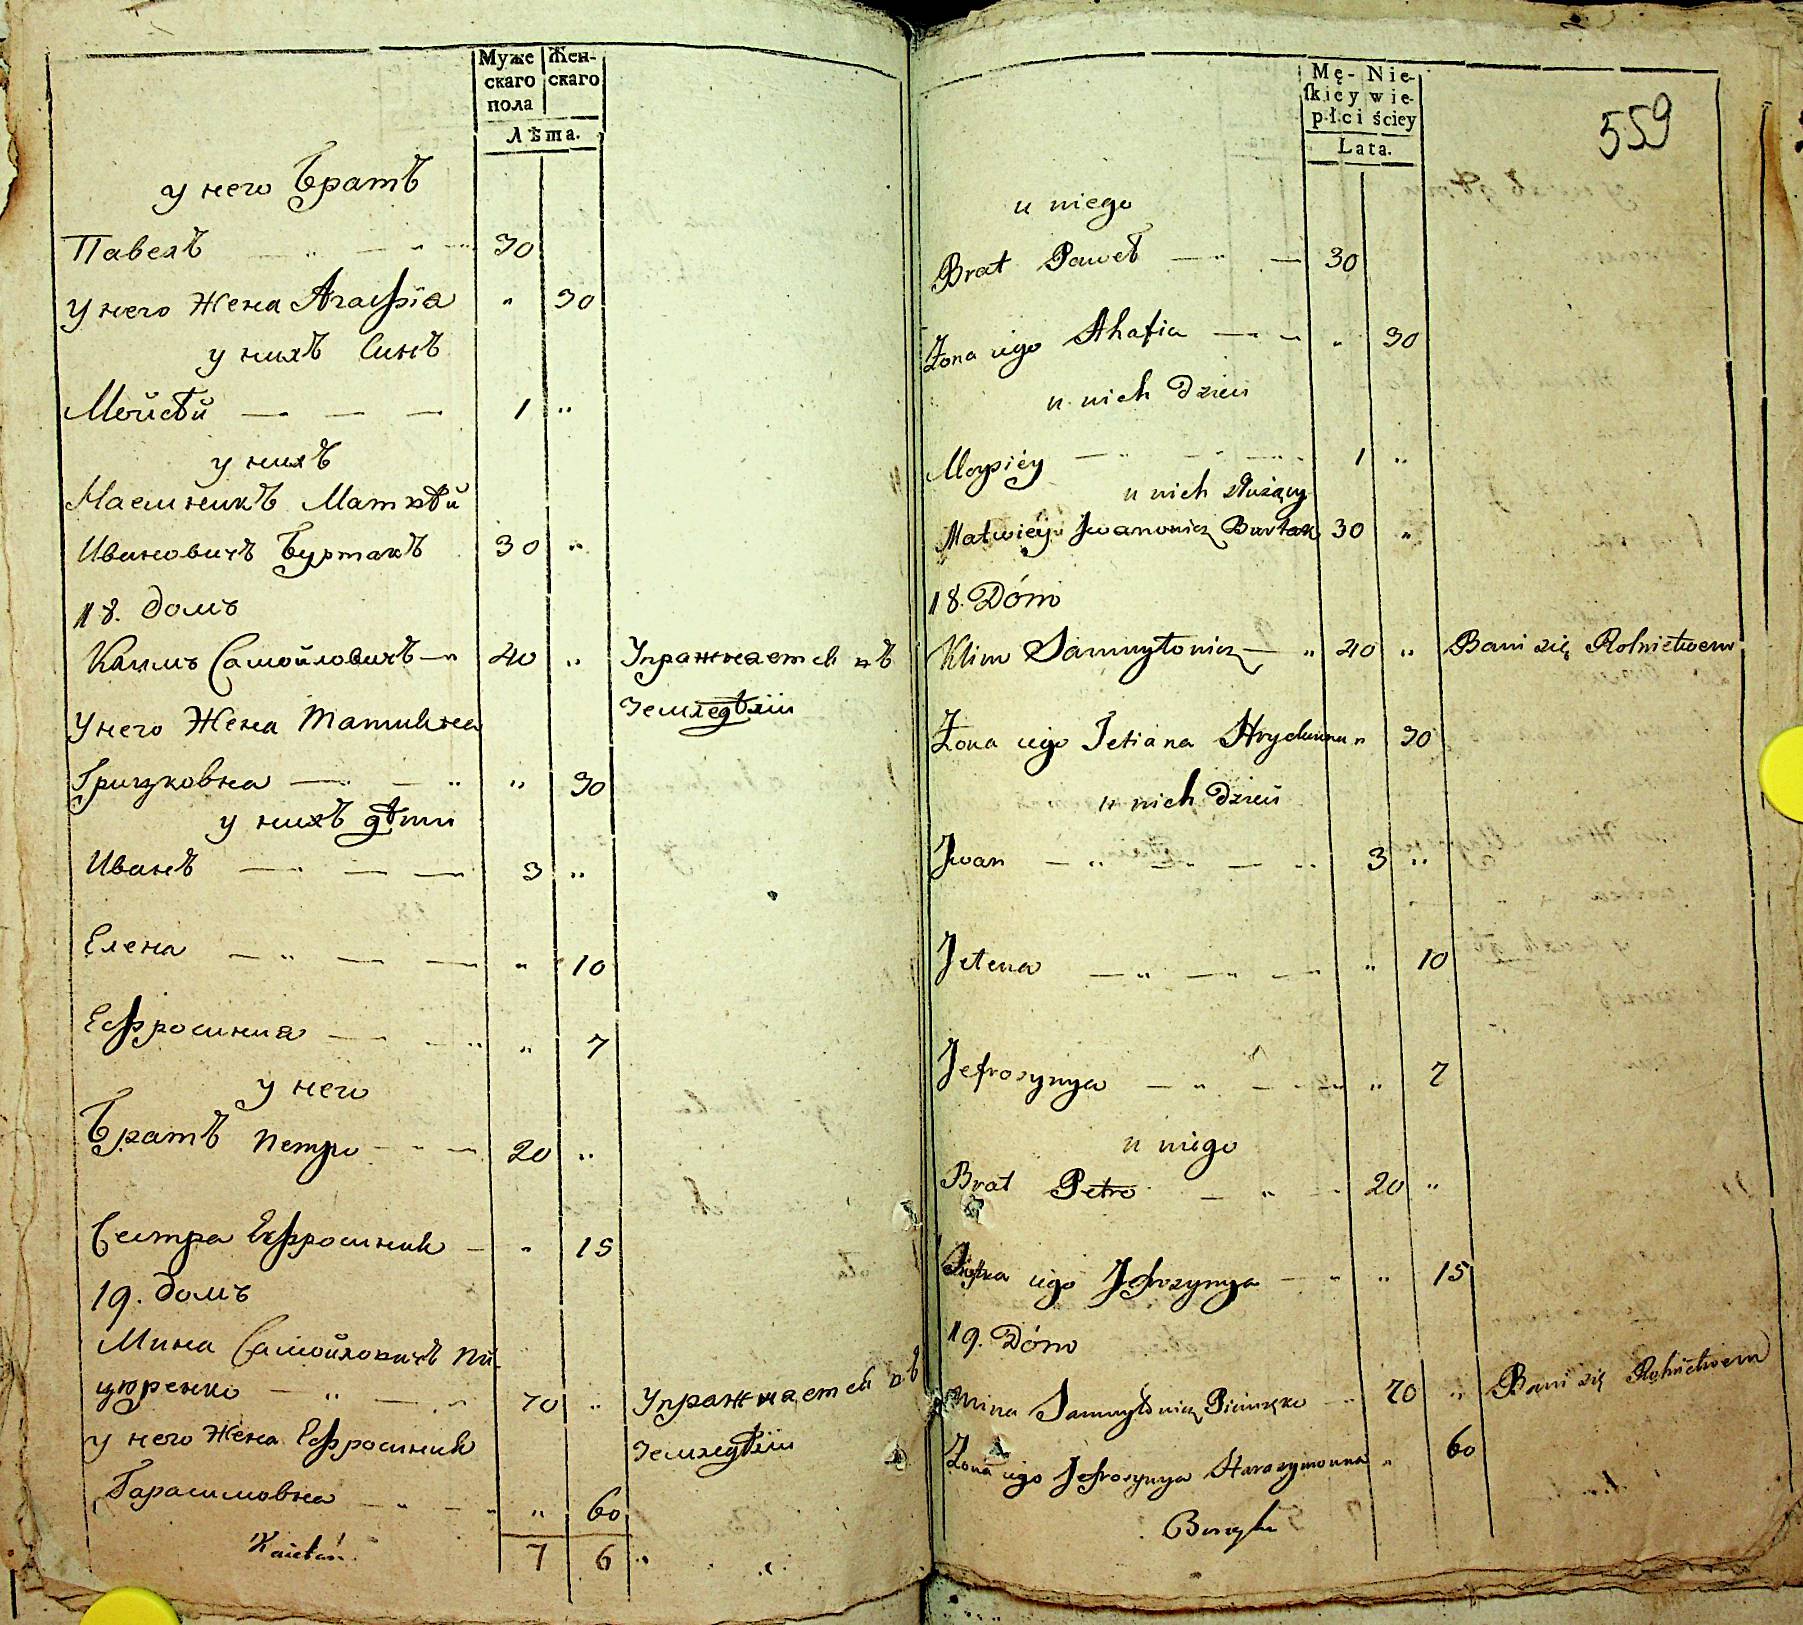 Муже Жен-
скаго скаго
пола
Лѣта.
у него Братъ
Павелъ 30
У него Жена Агафіа " 30
у нихъ Синъ
Мойсѣй 1 "
у нихъ
Наемникъ Матвѣй
Ивановичъ Буртакъ 30 "
18. домъ
Климъ Самойловичъ 40 " Упражняется въ
Земледѣліи
У него Жена Татияна
Грицковна " 30
у нихъ дѣти
Иванъ 3 "
Елена " 10
Ефросиния " 7
у него
Братъ Петро 20 "
Сестра Ефросиния " 15
19. домъ
Мина Самойловичъ Пи-
цюренко 70 " Упражняется въ
у него Жена Ефросиния Земледѣліи
Гарасимовна " 60
7 6
Mę- Nie-
ſkiey wie-
płci ściey
Lata.
559
u niego
Brat Paweł 30
Żona iego Ahafia " 30
u nich Dzieci
Moysiey 1 "
u nich służący
Matwiey Iwanowicz Burtak 30 "
18. Dóm
Klim Samuyłowicz 40 " Bawi się Rolnictwem
Żona iego Tetiana Hryckowna " 30
u nich Dzieci
Jwan 3 "
Jelena " 10
Jefrosynya " 7
u niego
Brat Petro 20 "
iego Jefrozynya " 15
19. Dóm
Mina Samuyłowicz 70 " Bawi się Rolnictwem
Żona iego Jefrosynya Harasymowna " 60